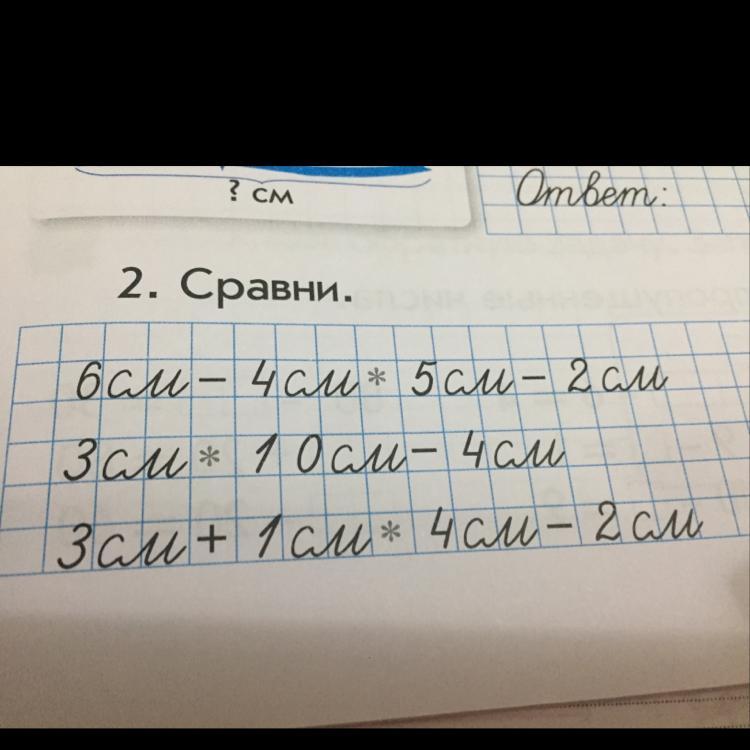 ? см
Ответ:
2. Сравни.
6см – 4см * 5см – 2см
3см * 10см – 4см
3см + 1см * 4см – 2см